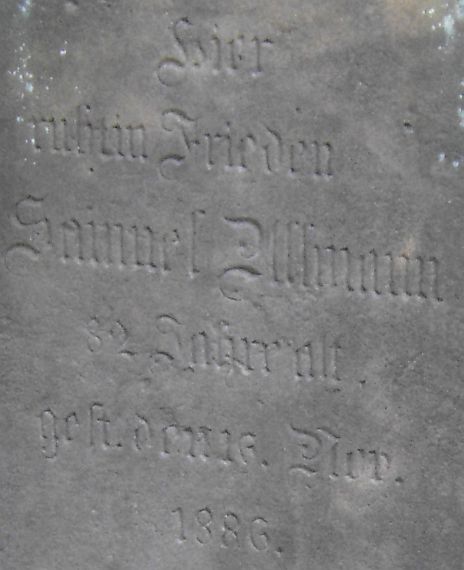 Hier
ruht in Frieden
Samuel Ullmann
82 Jahre alt.
gest. den 16. Nov.
1886.